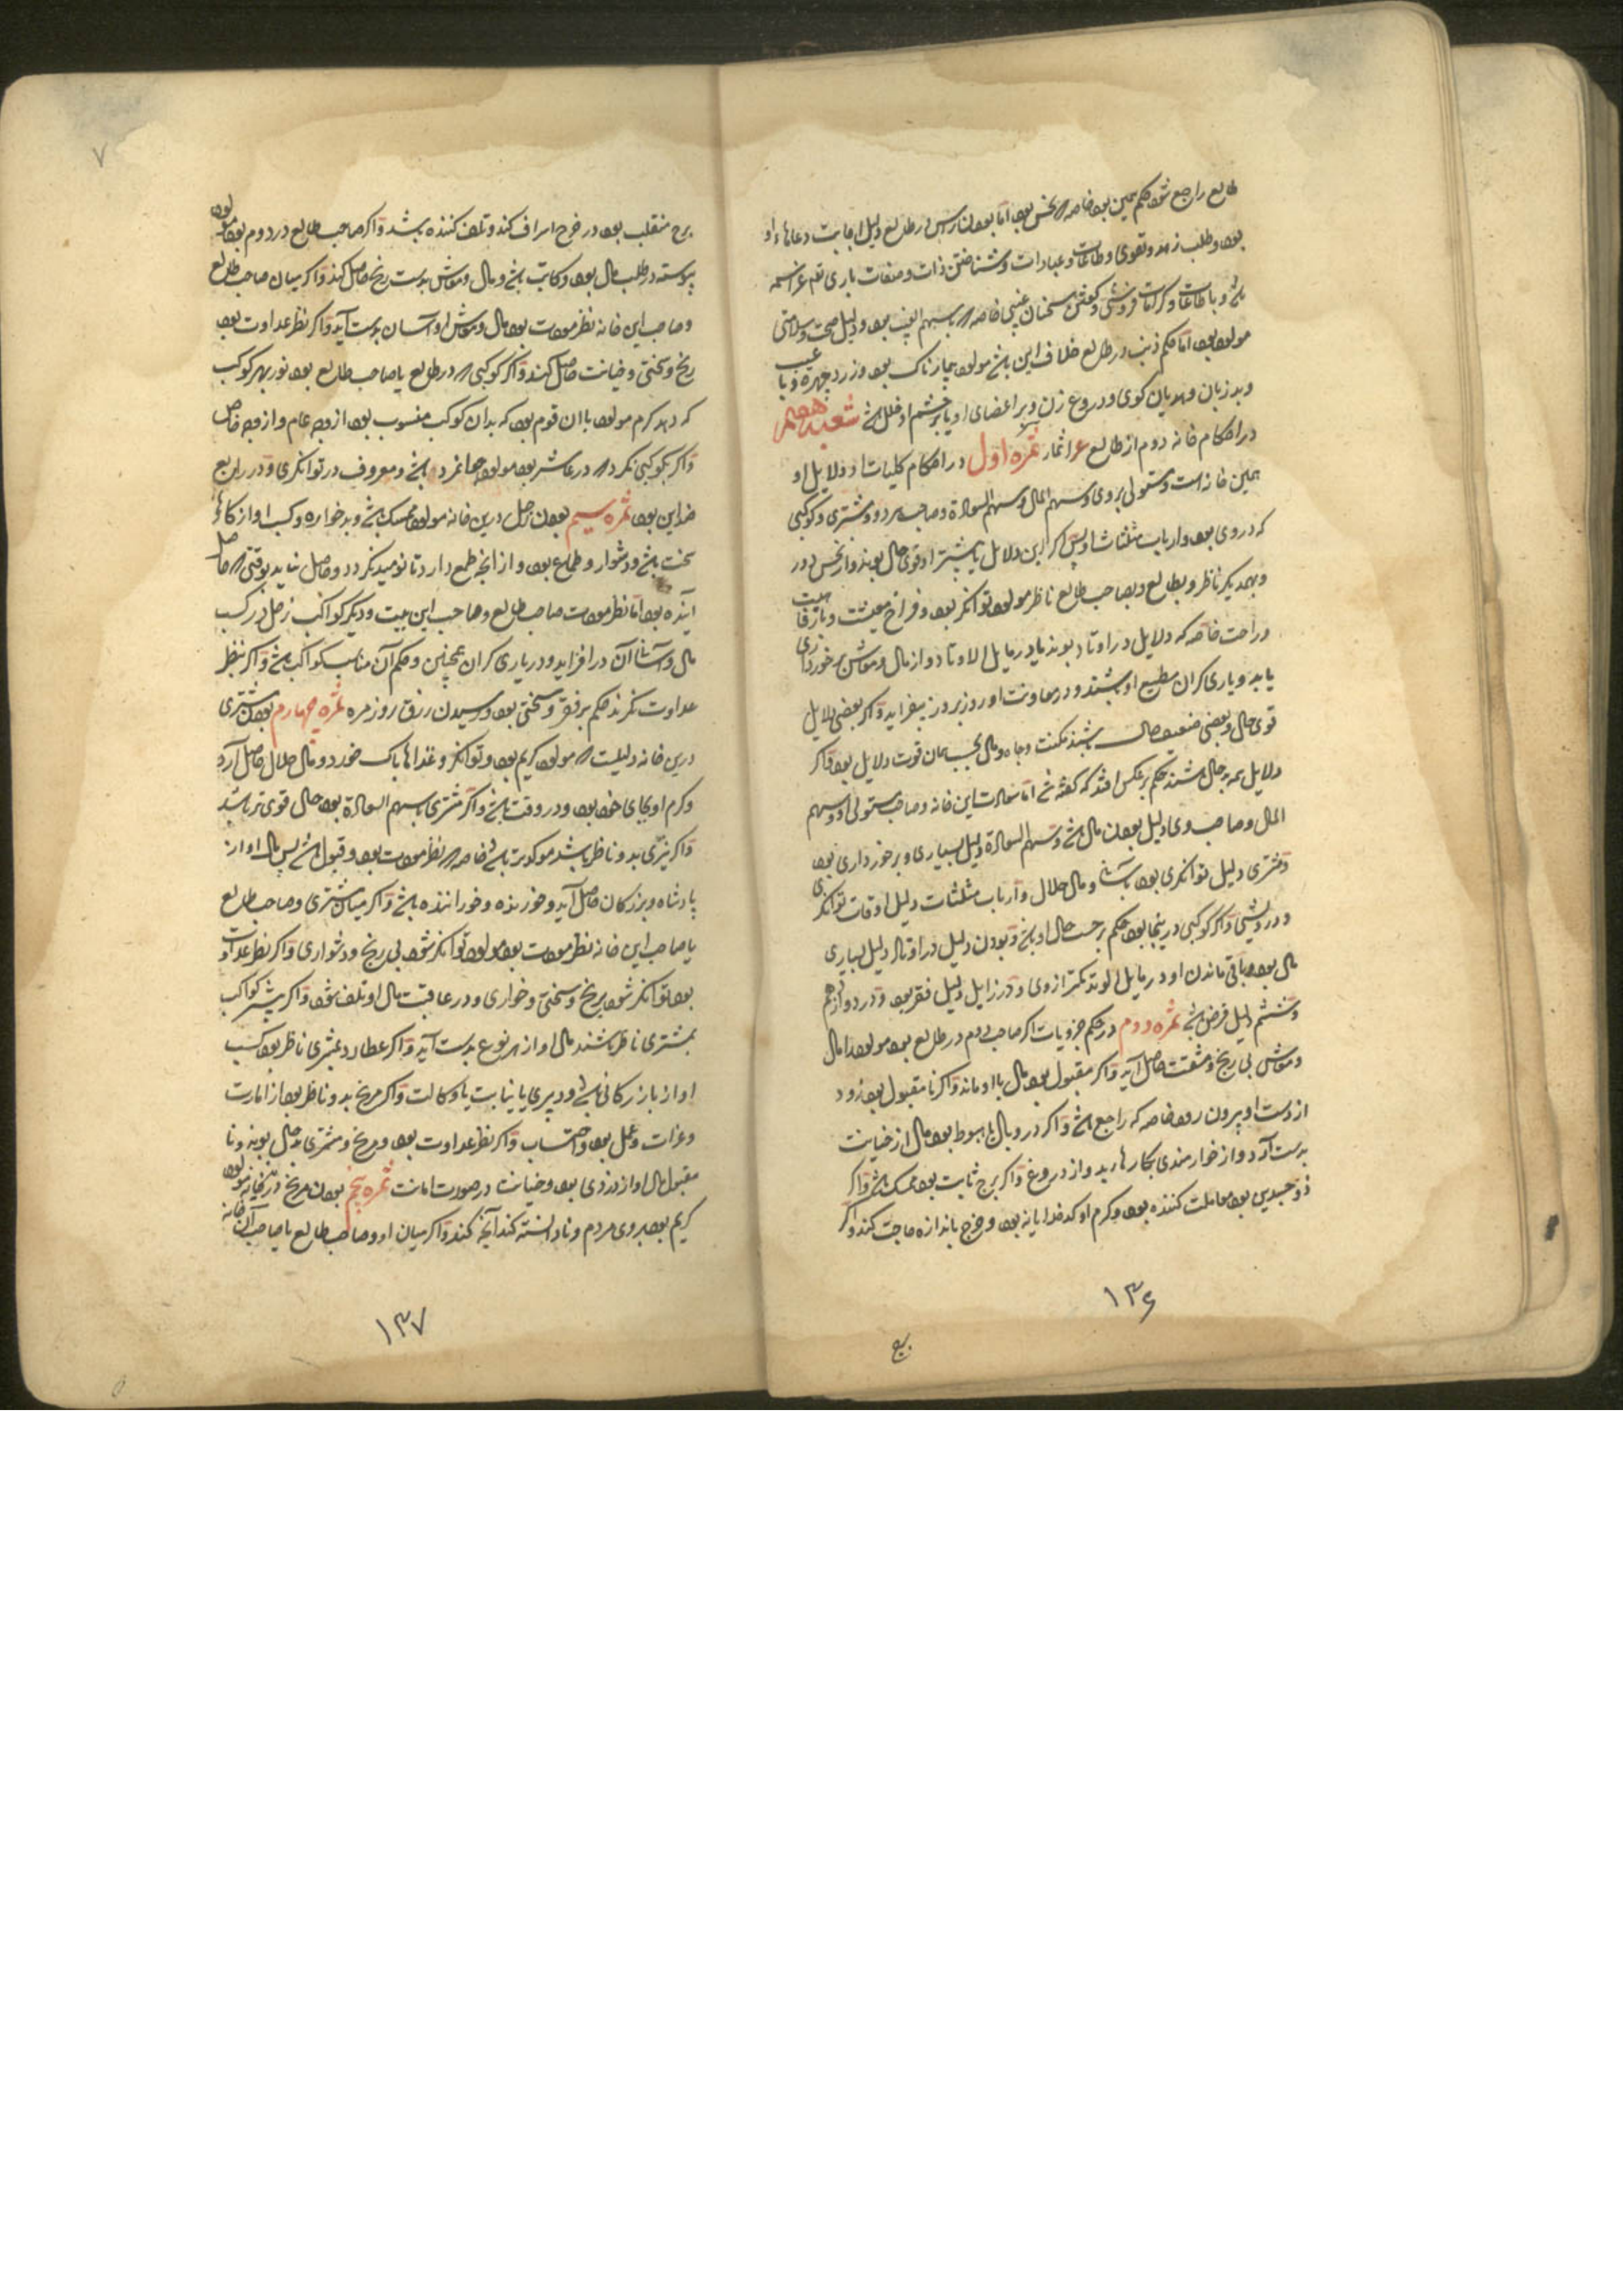 طالع راجع شود حکم همین بود خاصه که نحس بود اما بودن راس در طالع دلیل اجابت دعاهاء او
بود و طلب زهد و تقوی و طاعات و عبادات و شناختن ذات و صفات باری تعم عز اسمه
باشد و با طاعات و کرامات فروشی و کفتن سخنان غیبی خاصه که بسهم الغیب بود و دلیل صحت و سلامتی
مولود بود اما حکم ذنب در طالع خلاف این باشد مولود بیمارناک بود و زرد چهره و با عیب
و بد زبان و هذیان کوی و دروغ زن و بر اعضای او یا بر چشم او خلل باشد شعبه
در احکام خانه دوم از طالع اثمار ثمره اول در احکام کلیات او دلایل او
همین خانه است و مستولی بر وی و سهم المال و سهم السعادة و صاحب هر دو و مشتری و کوکبی
که در وی بود و ارباب مثلثات او پس اکر این دلایل یا بیشتر او قوی حال بوند و از نحس دور
و بهمدیکر ناظر و بطالع و بصاحب طالع ناظر مولود توانکر بود و فراخ معیشت و با رفاهیت
و راحت خاصه که دلایل در اوتاد بوند یا در مایل الاوتاد و از مال و معاش برخورداری
یابد و یاری کران مطیع او باشند و در معاونت او روز بروز بیفزاید و اکر بعضی دلایل
قوی حال و بعضی ضعیف حال باشند مکنت و جاه و مال بحسب همان قوت دلایل بود و اکر
دلایل همه بدحال باشند حکم برعکس افتد که کفته شد اما سعادت این خانه و صاحب مستولی او و سهم
المال و صاحب وی دلیل بودن مال باشد و سهم السعادة دلیل بسیاری و برخورداری بود
و مشتری دلیل توانکری بود بآسانی و مال حلال و ارباب مثلثات دلیل اوقات توانکری
و درویشی و اکر کوکبی درینجا بود حکم بر حسب حال او باشد و بودن دلیل در اوتاد دلیل بسیاری
مال بود و باقی ماندن او در مایل الوتد کمتر از وی و در زایل دلیل فقر بود و در دوازدهم
و ششم دلیل قرض باشد ثمره دوم در حکم جزویات اکر صاحب دوم در طالع بود مولود را مال
و معاش بی رنج و مشقت حاصل آید و اکر مقبول بود مال با او ماند و اکر نا مقبول بود زود
از دست او بیرون رود خاصه که راجع باشد و اکر در وبال یا هبوط بود مال از خیانت
بدست آرد و از خوارمندی بکارهاء بد و از دروغ و اکر برج ثابت بود ممسک باشد و اکر
ذو جسدین بود معاملت کننده بود و کرم او کدخدایانه بود و خرج باندازه حاجت کند و اکر
۱۳۶
۷
برج منقلب بود در خرج اسراف کند و تلف کننده باشد و اکر صاحب طالع در دوم بود مولود
پیوسته در طلب مال بود و کاتب باشد و مال و معاش بدست رنج حاصل کند و اکر میان صاحب طالع
و صاحب این خانه نظر مودت بود مال و معاش او آسان بدست آید و اکر نظر عداوت بود
رنج و سختی و خیانت حاصل کند و اکر کوکبی که در طالع یا صاحب طالع بود نور بهر کوکب
که دهد کرم مولود با ان قوم بود که بدان کوکب منسوب بود از وجه عام و از وجه خاص
و اکر بکوکبی نکرد که در عاشر بود مولود جوانمرد باشد و معروف در توانکری و در رابع
ضد این بود ثمره سیم بودن زحل درین خانه مولود ممسک باشد و بد خواره و کسب او از کارهاء
سخت باشد و دشوار و طماع بود و از انچه طمع دارد تا نومید نکردد و حاصل نیاید بوقتی که حاصل
آینده بود اما نظر مودت صاحب طالع و صاحب این بیت و دیکر کواکب زحل در کسب
مال و آسانی آن درافزاید و در یاری کران همچنین و حکم آن مناسب کواکب باشد و اکر بنظر
عداوت نکرند حکم بر فقر و سختی بود و رسیدن رزق روزمره ثمره چهارم بودن مشتری
درین خانه دلیلست که مولود کریم بود و توانکر و غذاهاء پاک خورد و مال حلال حاصل آرد
و کرم او بجای خود بود و در وقت باشد و اکر مشتری با سهم السعادة بود حال قوی تر باشد
و اکر نیری بدو ناظر باشد موکدتر باشد خاصه که نظر مودت بود و قبول باشد پس مال او از
پادشاه و بزرکان حاصل آید و خورنده و خوراننده باشد و اکر میان مشتری و صاحب طالع
یا صاحب این خانه نظر مودت بود مولود توانکر شود بی رنج و دشواری و اکر نظر عداوت
بود توانکر شود برنج و سختی و خواری و در عاقبت مال او تلف شود و اکر بیشتر کواکب
بمشتری ناظر باشند مال او از هر نوع بدست آید و اکر عطارد بمشتری ناظر بود کسب
او از بازرکانی باشد و دبیری یا نیابت یا وکالت و اکر مریخ بدو ناظر بود از امارت
و غزات و عمل بود و احتساب و اکر نظر عداوت بود و مریخ و مشتری بدحال بوند و نا
مقبول مال او از دزدی بود و خیانت در صورت امانت ثمره پنجم بودن مریخ درین خانه مولود
کریم بود بروی مردم و نادانسته کند آنچه کند و اکر میان او و صاحب طالع یا صاحب آن خانه
۱۳۷